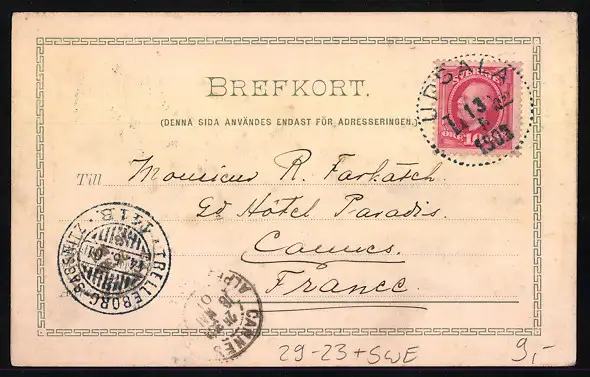 BREFKORT.
(DENNA SIDA ANVÄNDES ENDAST FÖR ADRESSERINGEN.)
UPSALA
13
Till Monsieur R. Farkasch.
Gd Hôtel Paradis.
Cannes.
France.
TRELLEBORG-SASSNITZ
181B.
CANNES
ALPES
29-23+SWE
9,-